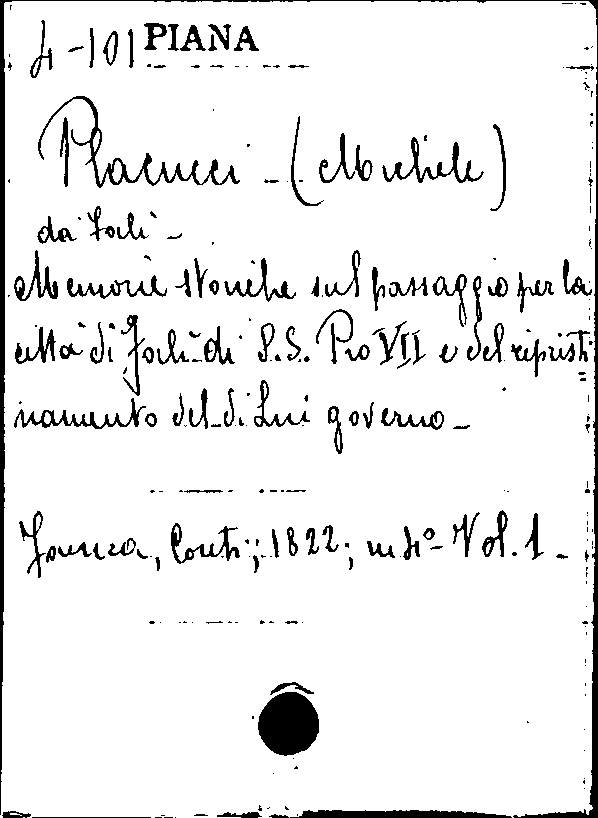 4-101 PIANA
Placucci - (Michele)
da Forlì -
Memorie storiche sul passaggio per la
città di Forlì di S.S. Pio VII e del ripristi=
namento del di Lui governo -
Faenza, Conti; 1822; in 4º- Vol. 1 -